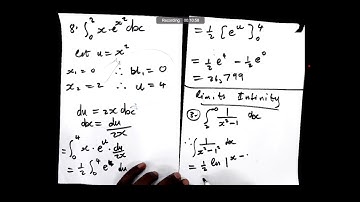 Recording 00:10:50
8. ∫₀² x·e^(x²) dx
Let u = x²
x₁ = 0 ∴ u₁ = 0
x₂ = 2 ∴ u = 4
du = 2x dx
dx = du/2x
= ∫₀⁴ x·eᵘ·du/2x
= ½ ∫₀⁴ eᵘ du
= ½ [eᵘ]₀⁴
= ½ e⁴ − ½ e⁰
= 26,799
Limits Infinity
1/(x²−1) dx
∴ ∫ 1/(x²−1²) dx
= ½ ln |x −